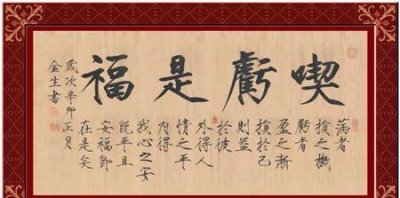 喫虧是福
滿者
損之機
虧者
盈之漸
損於己
則益
於彼
外得人
情之平
內得
我心之安
既平且
安福即
在是矣
歲次辛卯正月
金生書